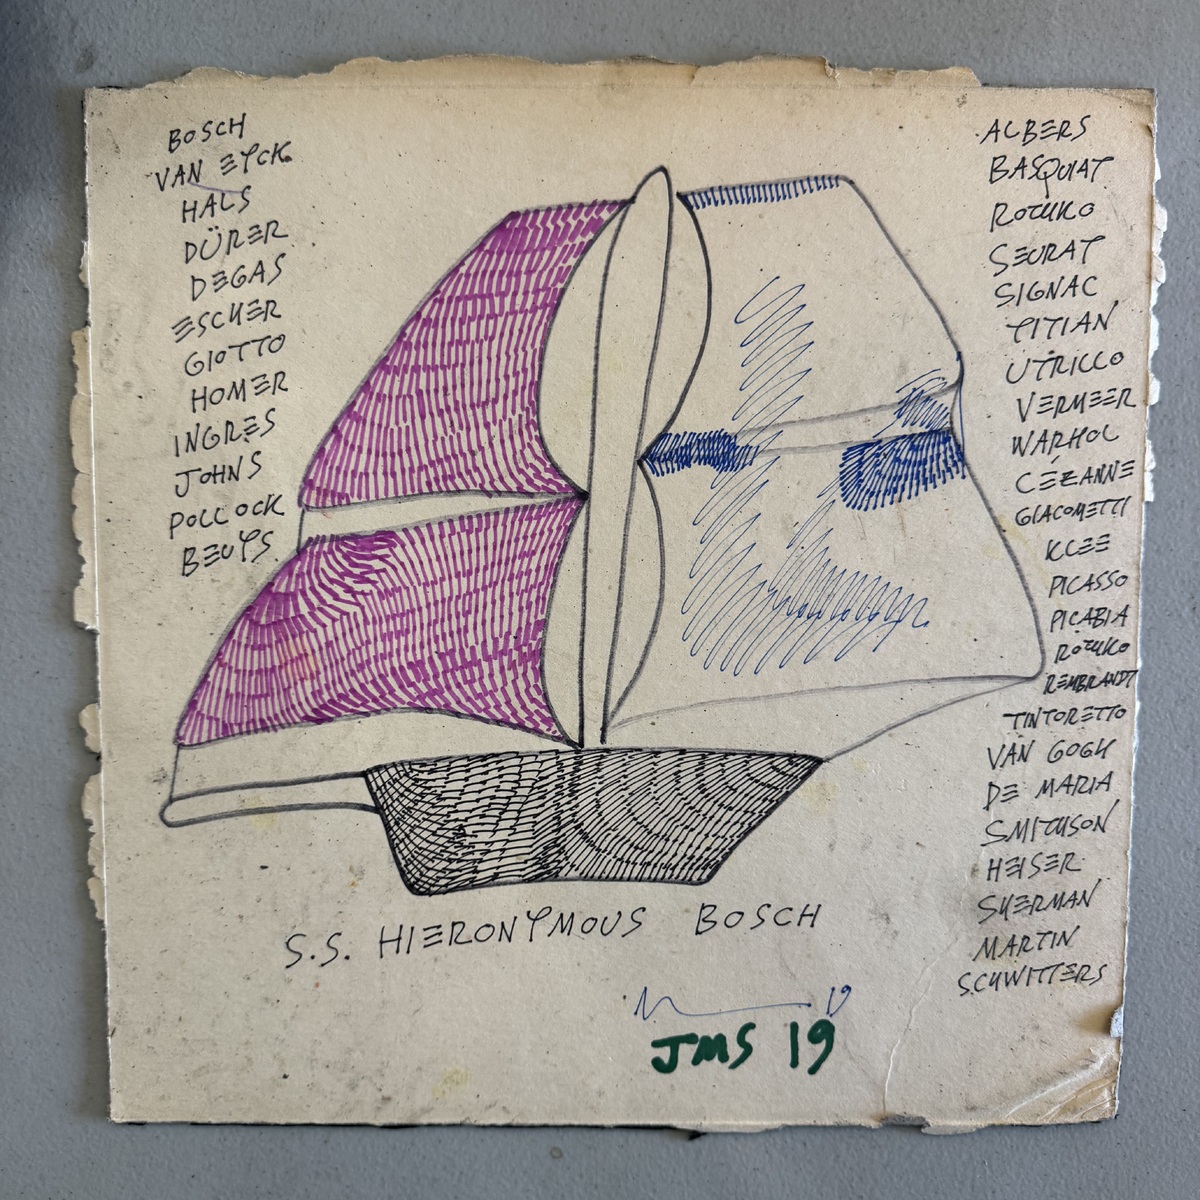 BOSCH
VAN EYCK
HALS
DÜRER
DEGAS
ESCHER
GIOTTO
HOMER
INGRES
JOHNS
POLLOCK
BEUYS
ALBERS
BASQUIAT
ROTHKO
SEURAT
SIGNAC
TITIAN
UTRILLO
VERMEER
WARHOL
CÉZANNE
GIACOMETTI
KLEE
PICASSO
PICABIA
ROTHKO
REMBRANDT
TINTORETTO
VAN GOGH
DE MARIA
SMITHSON
HEISER
SHERMAN
MARTIN
SCHWITTERS
S.S. HIERONYMOUS BOSCH
19
JMS 19